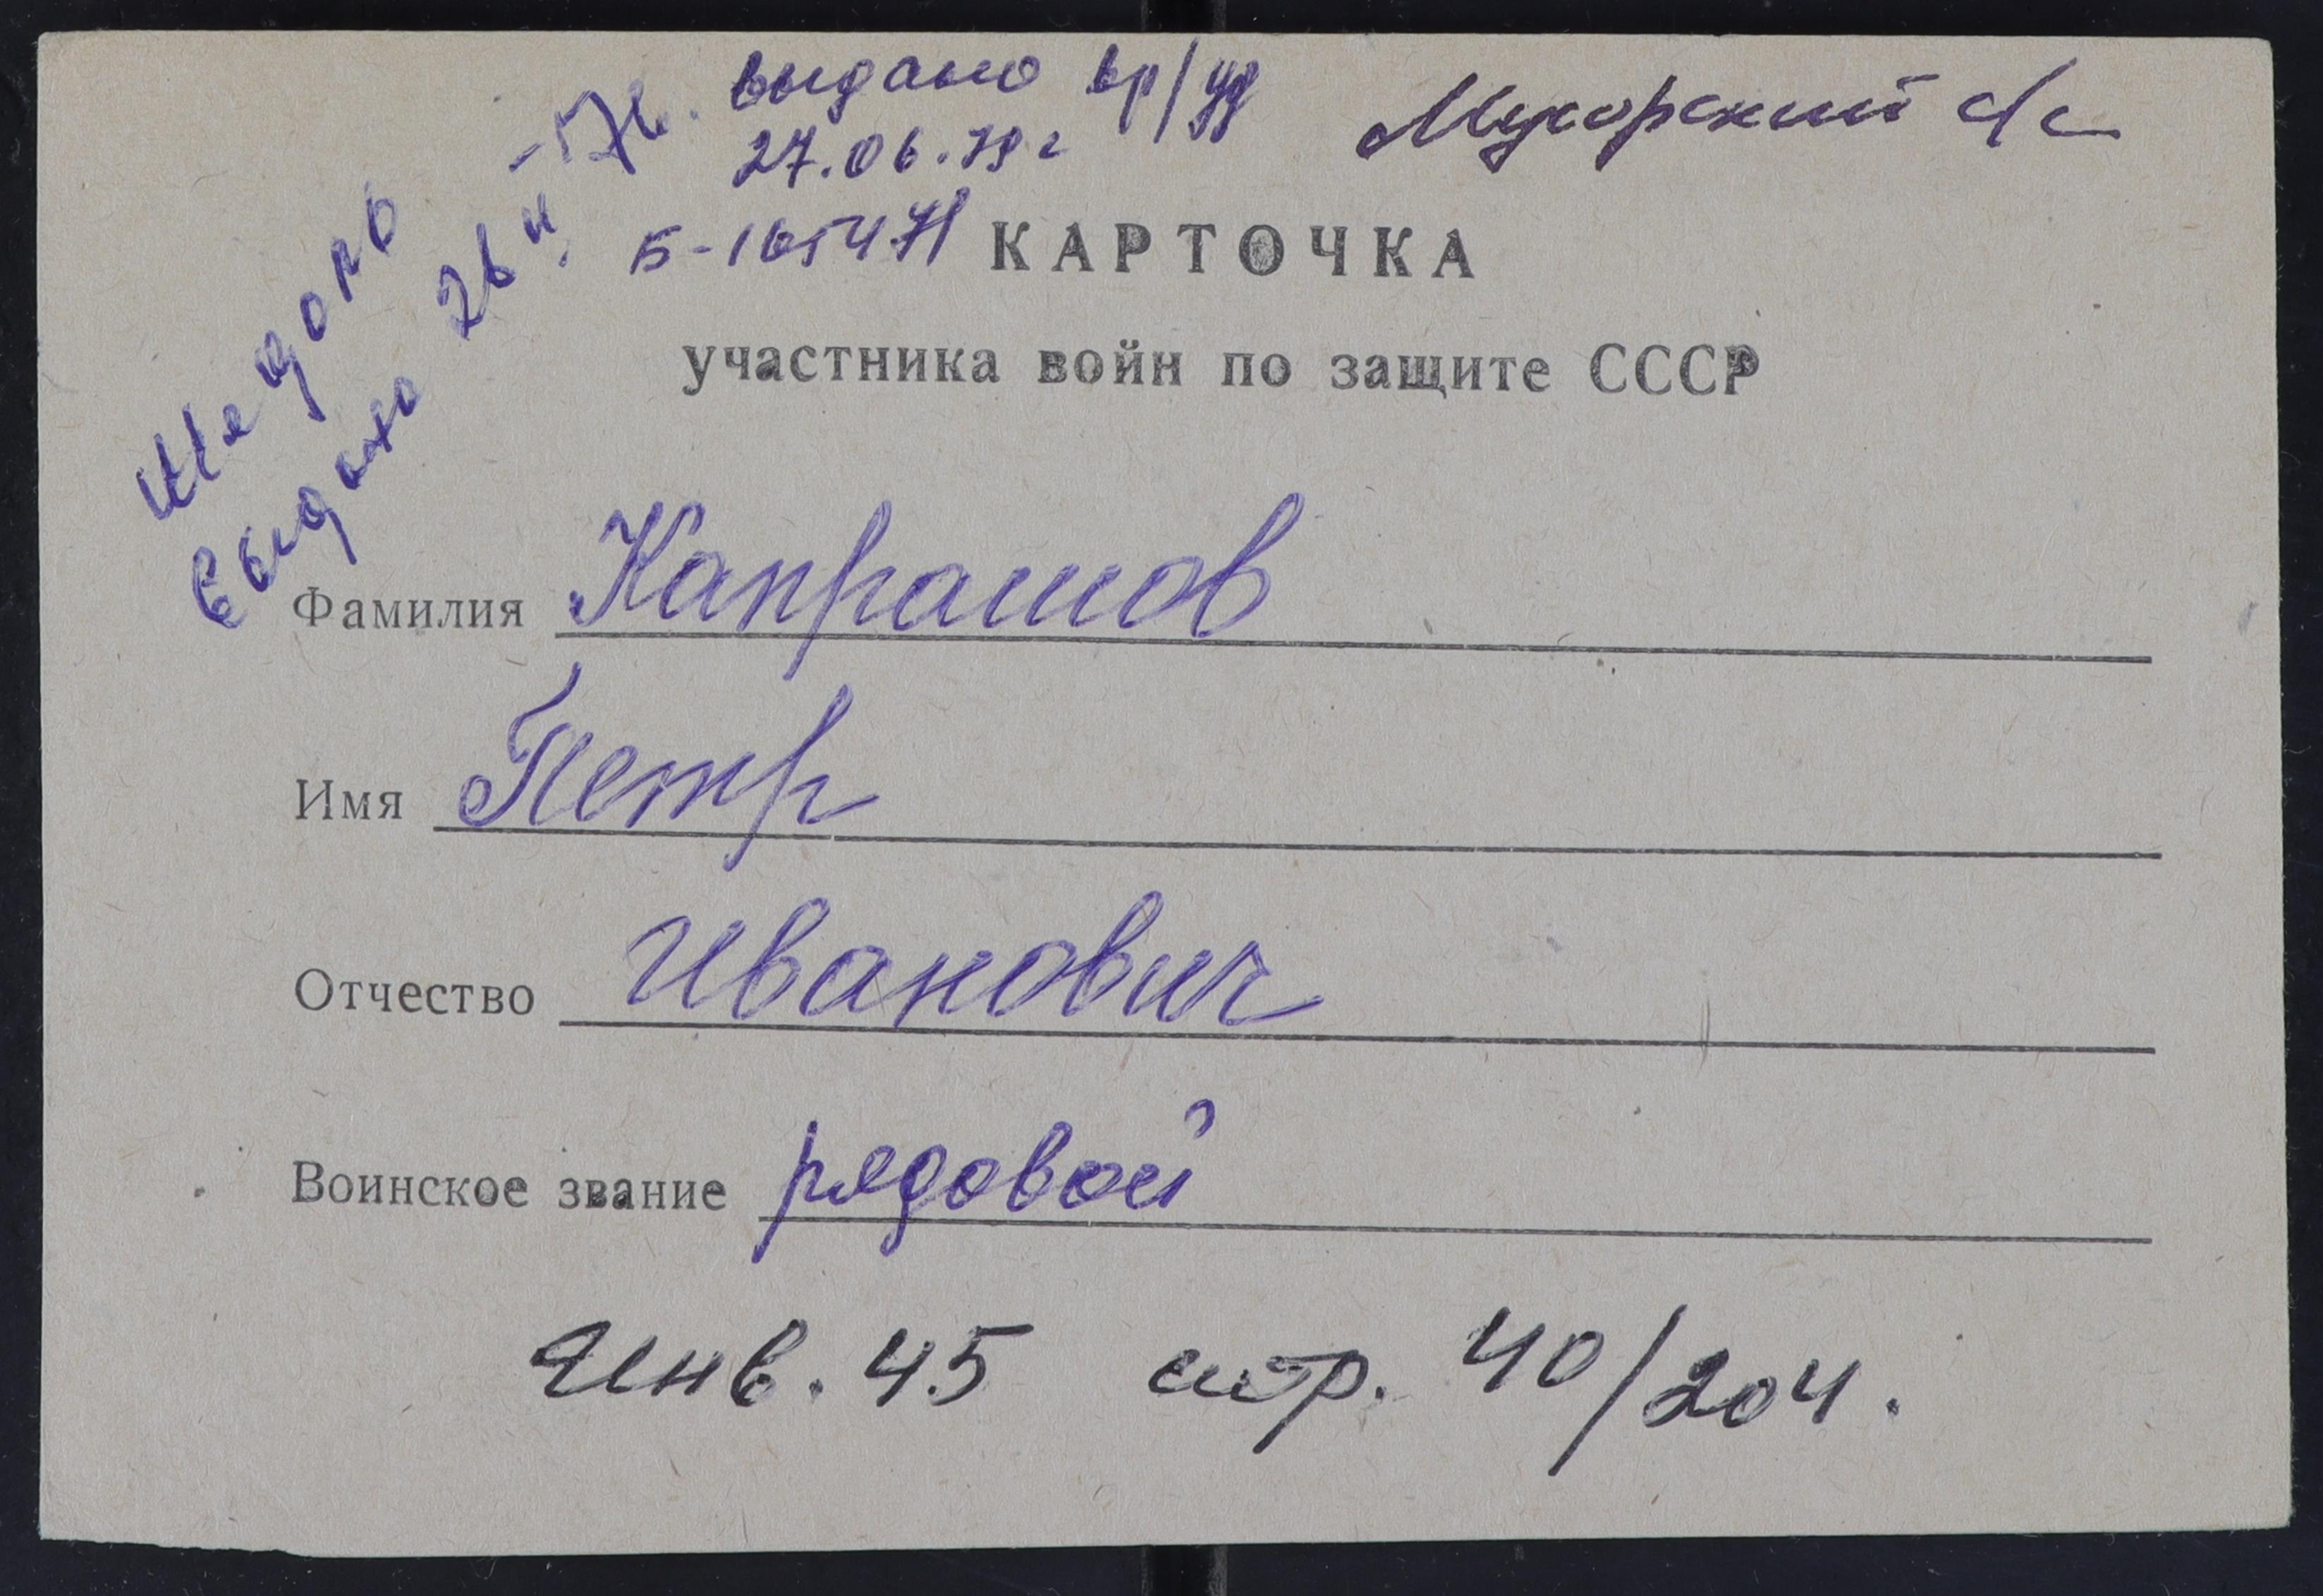 выдано вр/уд
27.06.79 г
Мухорский с/с
Медаль
выдано 26 4 - 76.
Б-165471
КАРТОЧКА
участника войн по защите СССР
Фамилия Капрашов
Имя Петр
Отчество Иванович
Воинское звание рядовой
Инв. 45 стр. 40/204.